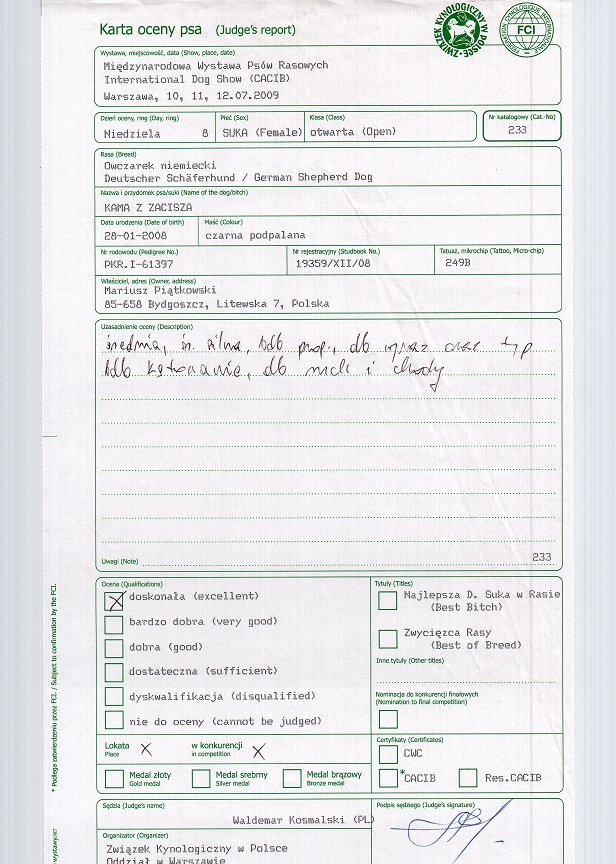 Karta oceny psa (Judge's report)
ZWIĄZEK KYNOLOGICZNY W POLSCE
FCI
FEDERATION CYNOLOGIQUE INTERNATIONALE
Wystawa, miejscowość, data (Show, place, date)
Międzynarodowa Wystawa Psów Rasowych
International Dog Show (CACIB)
Warszawa, 10, 11, 12.07.2009
Dzień oceny, ring (Day, ring) Płeć (Sex) Klasa (Class) Nr katalogowy (Cat.-No)
Niedziela 8 SUKA (Female) otwarta (Open) 233
Rasa (Breed)
Owczarek niemiecki
Deutscher Schäferhund / German Shepherd Dog
Nazwa i przydomek psa/suki (Name of the dog/bitch)
KAMA Z ZACISZA
Data urodzenia (Date of birth) Maść (Colour)
28-01-2008 czarna podpalana
Nr rodowodu (Pedigree No.) Nr rejestracyjny (Studbook No.) Tatuaż, mikrochip (Tattoo, Micro-chip)
PKR.I-61397 19359/XII/08 249B
Właściciel, adres (Owner, address)
Mariusz Piątkowski
85-658 Bydgoszcz, Litewska 7, Polska
Uzasadnienie oceny (Description)
średnia, śr. silna, bdb prop., db wyraz oraz typ
bdb kątowanie, db ruch i chody
Uwagi (Note) 233
Ocena (Qualifications) Tytuły (Titles)
doskonała (excellent) Najlepsza D. Suka w Rasie
(Best Bitch)
bardzo dobra (very good)
dobra (good) Zwycięzca Rasy
(Best of Breed)
dostateczna (sufficient) Inne tytuły (Other titles)
dyskwalifikacja (disqualified) Nominacja do konkurencji finałowych
(Nomination to final competition)
nie do oceny (cannot be judged)
Lokata X w konkurencji X Certyfikaty (Certificates)
Place in competition CWC
Medal złoty Medal srebrny Medal brązowy *CACIB Res.CACIB
Gold medal Silver medal Bronze medal
Sędzia (Judge's name) Podpis sędziego (Judge's signature)
Waldemar Kosmalski (PL)
Organizator (Organizer)
Związek Kynologiczny w Polsce
Oddział w Warszawie
* Podlega zatwierdzeniu przez FCI. / Subject to confirmation by the FCI.